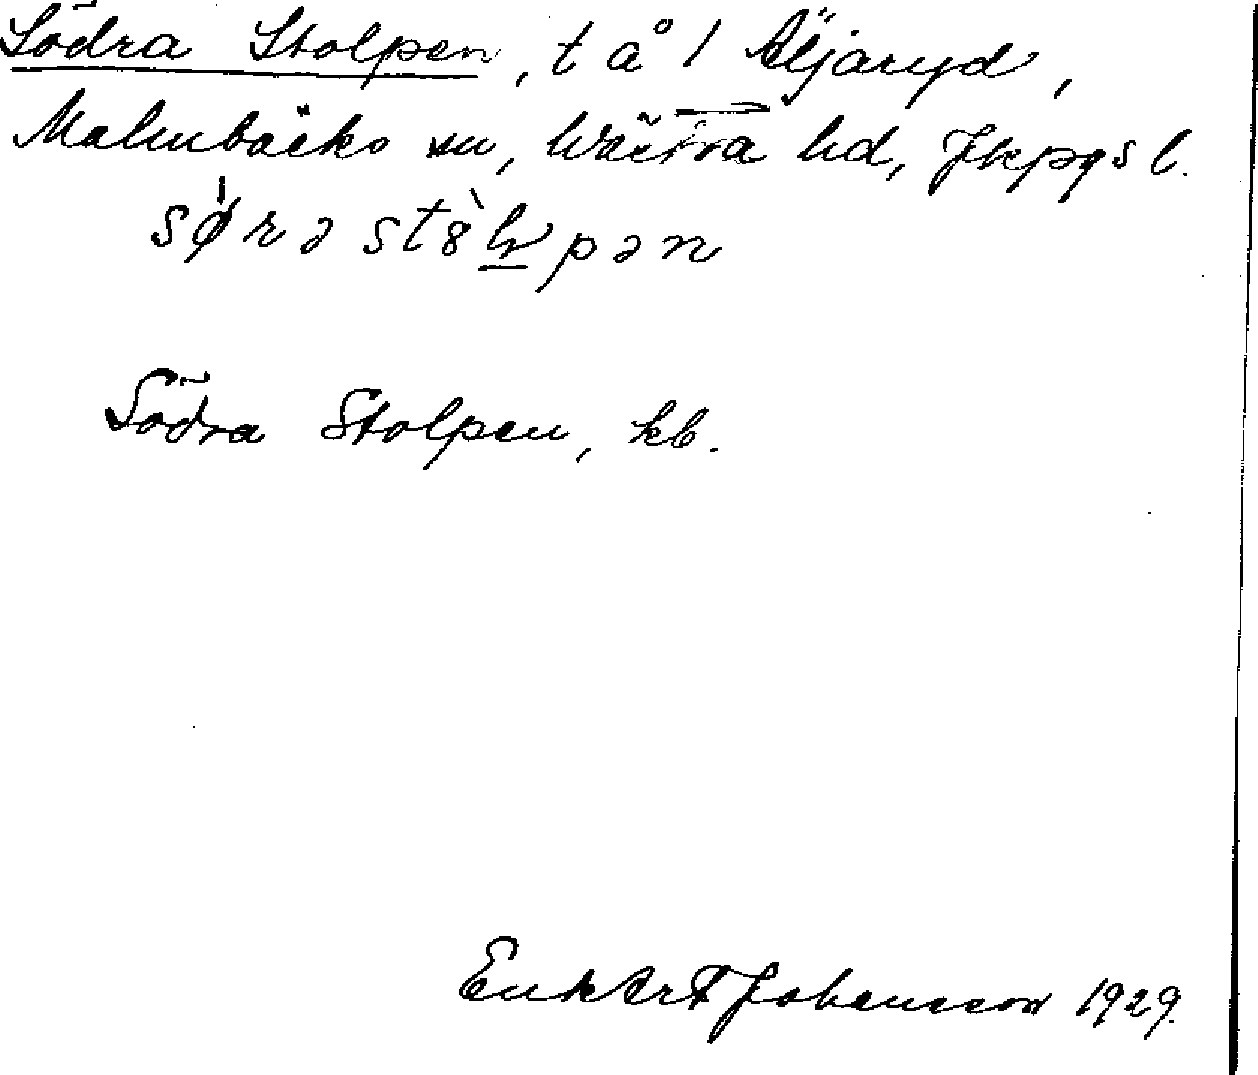 Södra Stolpen, t å 1 Äljaryd,
Malmbäcks sn, Västra hd, Jkpgs l.
sǿrə stɞ̀lpən
Södra Stolpen, kb.
Johansson 1929.